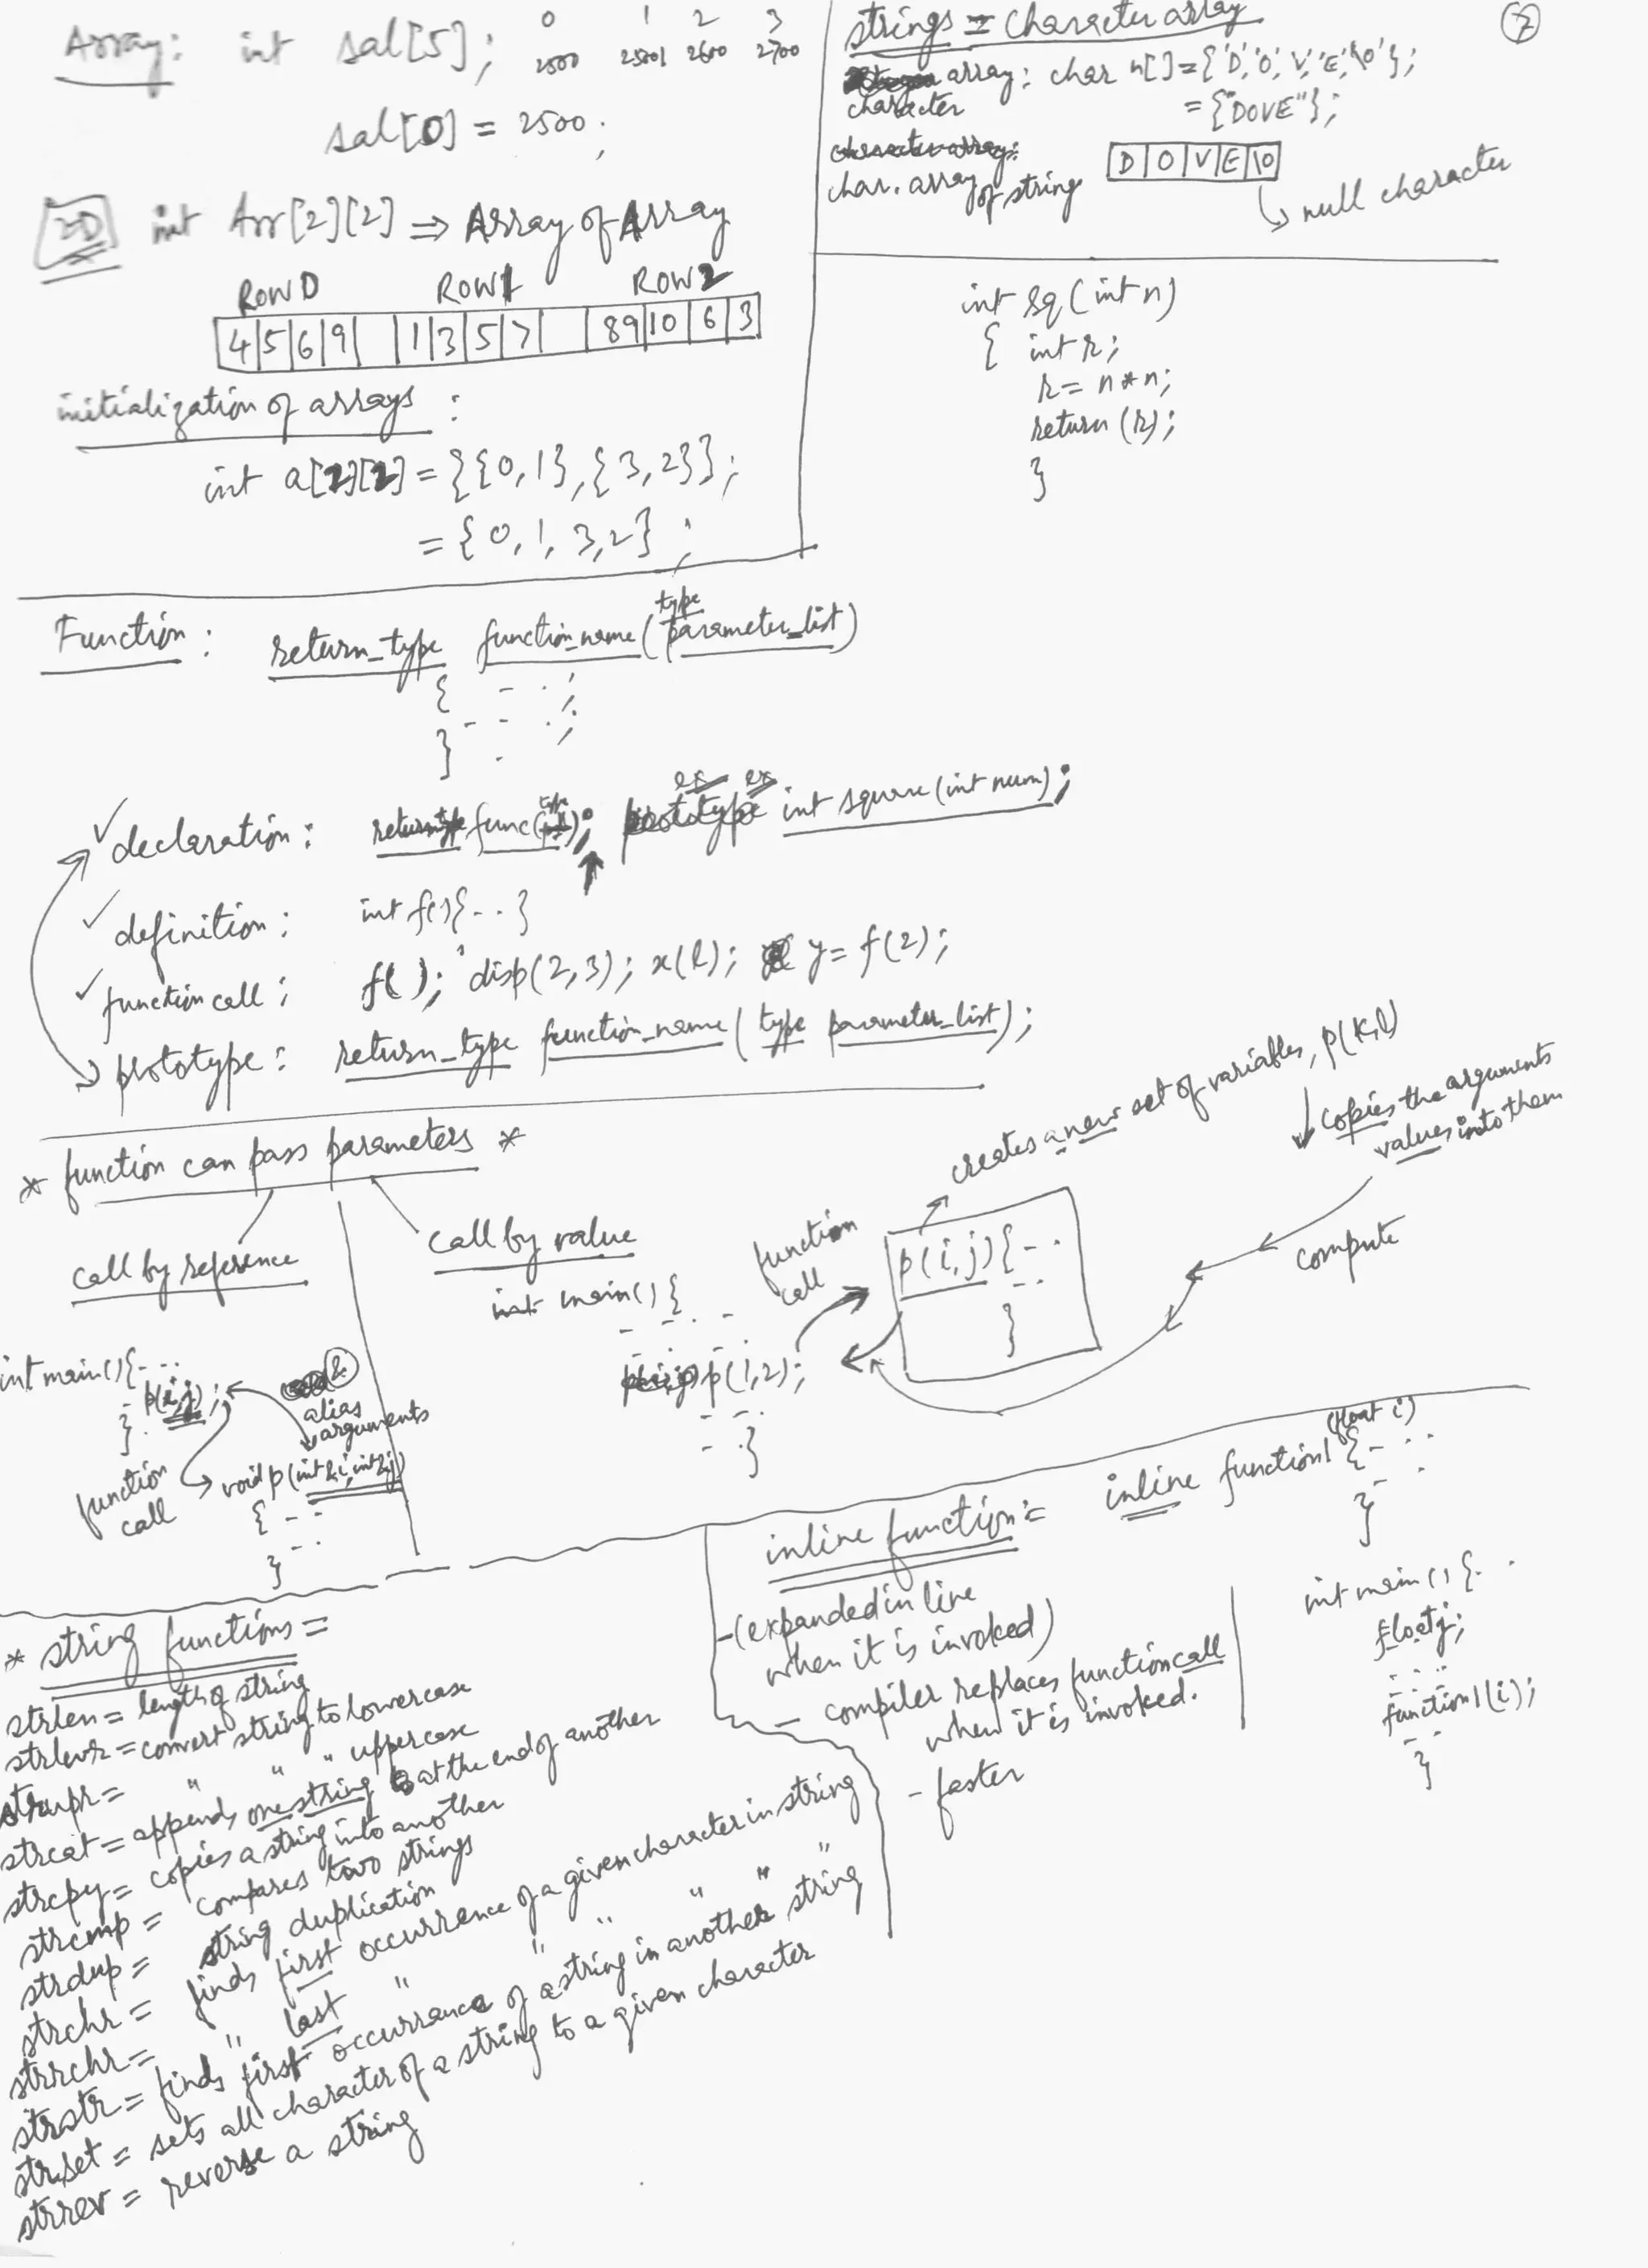 Array: int sal[5]; 0 1 2 3
2500 2501 2600 2700
sal[0] = 2500;
2D int Arr[2][2] ⇒ Array of Array
ROW 0 ROW 1 ROW 2
4 5 6 9 1 3 5 7 89 10 6 3
initialization of arrays :
int a[2][2] = {{0,1},{3,2}};
= {0, 1, 3, 2} ;
strings = character array
7
array: char n[]={'D','O','V','E','\0'};
character
= {"DOVE"};
char. array of string
D O V E \0
↳ null character
int sq (int n)
{ int r;
r = n*n;
return (r);
}
Function : return_type function_name (type parameter_list)
{ - - ;
- - - ;
}
✓ declaration : return type func(type); prototype ex int square (int num);
✓ definition : int f(){--}
✓ function call ; f( ); disp(2,3); x(l); y = f(2);
prototype : return_type function_name ( type parameter_list);
* function can pass parameters *
call by reference
call by value
int main(){---
p(i,j);
}
&
alias
arguments
function call
void p(int &i, int &j)
{ - -
- -
}
int main() {
- - - -
p(1,2);
- -
- - }
function call
p(i,j){--
- -
}
creates a new set of variables, p(k,l)
copies the arguments
values into them
compute
inline function :=
-(expanded in line
when it is invoked)
- compiler replaces function call
when it is invoked.
- faster
inline function1 (float i)
{- - -
- -
}
int main () {- -
float j;
- - - -
function1(i);
- -
}
* string functions =
strlen = length of string
strlwr = convert string to lowercase
strupr = " " " uppercase
strcat = appends one string at the end of another
strcpy = copies a string into another
strcmp = compares two strings
strdup = string duplication
strchr = finds first occurrence of a given character in string
strrchr = " last " " " " " "
strstr = finds first occurrance of a string in another string
strset = sets all character of a string to a given character
strrev = reverse a string